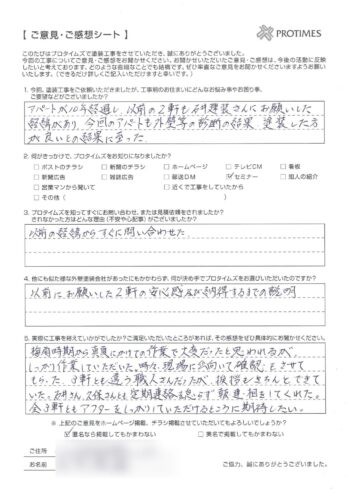 【 ご意見・ご感想シート 】
PROTIMES
このたびはプロタイムズで塗装工事をさせていただき、誠にありがとうございました。
今回の工事についてご意見・ご感想をお聞かせください。お聞かせいただいたご意見・ご感想は、今後の活動に反映
したいと考えております。どのような些細なことでも結構です。ぜひ率直なご意見をお聞かせくださいますようお願い
いたします。（できるだけ詳しくご記入いただけますと幸いです。）
1. 今回、塗装工事をご依頼いただきましたが、工事前のお住まいにどんなお悩み事やお困り事、
ご要望などがございましたか？
アパートが10年経過し、以前の2軒も 建装さんにお願いした
経緯があり、今回のアパートも外壁等の診断の結果 塗装した方
が良いとの結果に至った
2. 何がきっかけで、プロタイムズをお知りになりましたか？
□ ポストのチラシ □ 新聞のチラシ □ ホームページ □ テレビCM □ 看板
□ 新聞広告 □ 雑誌広告 □ 郵送DM ☑ セミナー □ 知人の紹介
□ 営業マンから聞いて □ 近くで工事をしていたから
□ その他（ ）
3. プロタイムズを知ってすぐにお問い合わせ、または見積依頼をされましたか？
されなかった方はどんな理由（不安や心配事）がございましたか？
以前の経緯からすぐに問い合わせた
4. 他にも似た様な外壁塗装会社があったにもかかわらず、何が決め手でプロタイムズをお選びいただいたのですか？
以前にお願いした2軒の安心感及び納得するまでの説明
5. 実際に工事を終えていかがでしたか？ご満足いただいたところがあれば、その感想をぜひ具体的にお聞かせください。
梅雨時期から真夏にかけての作業で大変だったと思われるが、
しっかり作業していただいた。時々現場に出向いて確認もさせて
もらった。3軒とも違う職人さんだったが、挨拶もきちんとできて
いた。 さん、久保さんとも定期連絡も怠らず報連相をしてくれた。
全3軒ともアフターをしっかりしていただけるところに期待したい。
※ 上記のご意見をホームページ掲載、チラシ掲載させていただいてもよろしいでしょうか？
☑ 匿名なら掲載してもかまわない □ 実名で掲載してもかまわない
ご住所
お名前
ご協力、誠にありがとうございました。